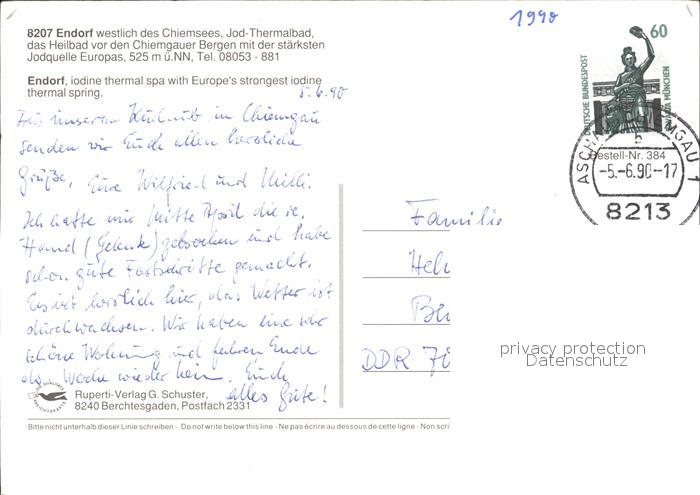 1990
8207 Endorf westlich des Chiemsees, Jod-Thermalbad,
das Heilbad vor den Chiemgauer Bergen mit der stärksten
Jodquelle Europas, 525 m ü.NN, Tel. 08053 - 881
Endorf, iodine thermal spa with Europe's strongest iodine
thermal spring.
5.6.90
60
DEUTSCHE BUNDESPOST
BAVARIA MÜNCHEN
Bestell-Nr. 384
ASCHAU I. CHIEMGAU 1
b
-5.-6.90-17
8213
Aus unserem Urlaub im Chiemgau
senden wir Euch allen herzliche
Grüße, Eure Wilfried und Milli.
Ich hatte mir Mitte April die re.
Hand (Gelenk) gebrochen und habe
schon gute Fortschritte gemacht.
Es ist herrlich hier, das Wetter ist
durchwachsen. Wir haben eine sehr
schöne Wohnung und fahren Ende
der Woche wieder heim. Euch
alles Gute!
Familie
Hel
DDR 70
privacy protection
Datenschutz
Ruperti-Verlag G. Schuster,
8240 Berchtesgaden, Postfach 2331
Bitte nicht unterhalb dieser Linie schreiben - Do not write below this line - Ne pas écrire au dessous de cette ligne - Non scri